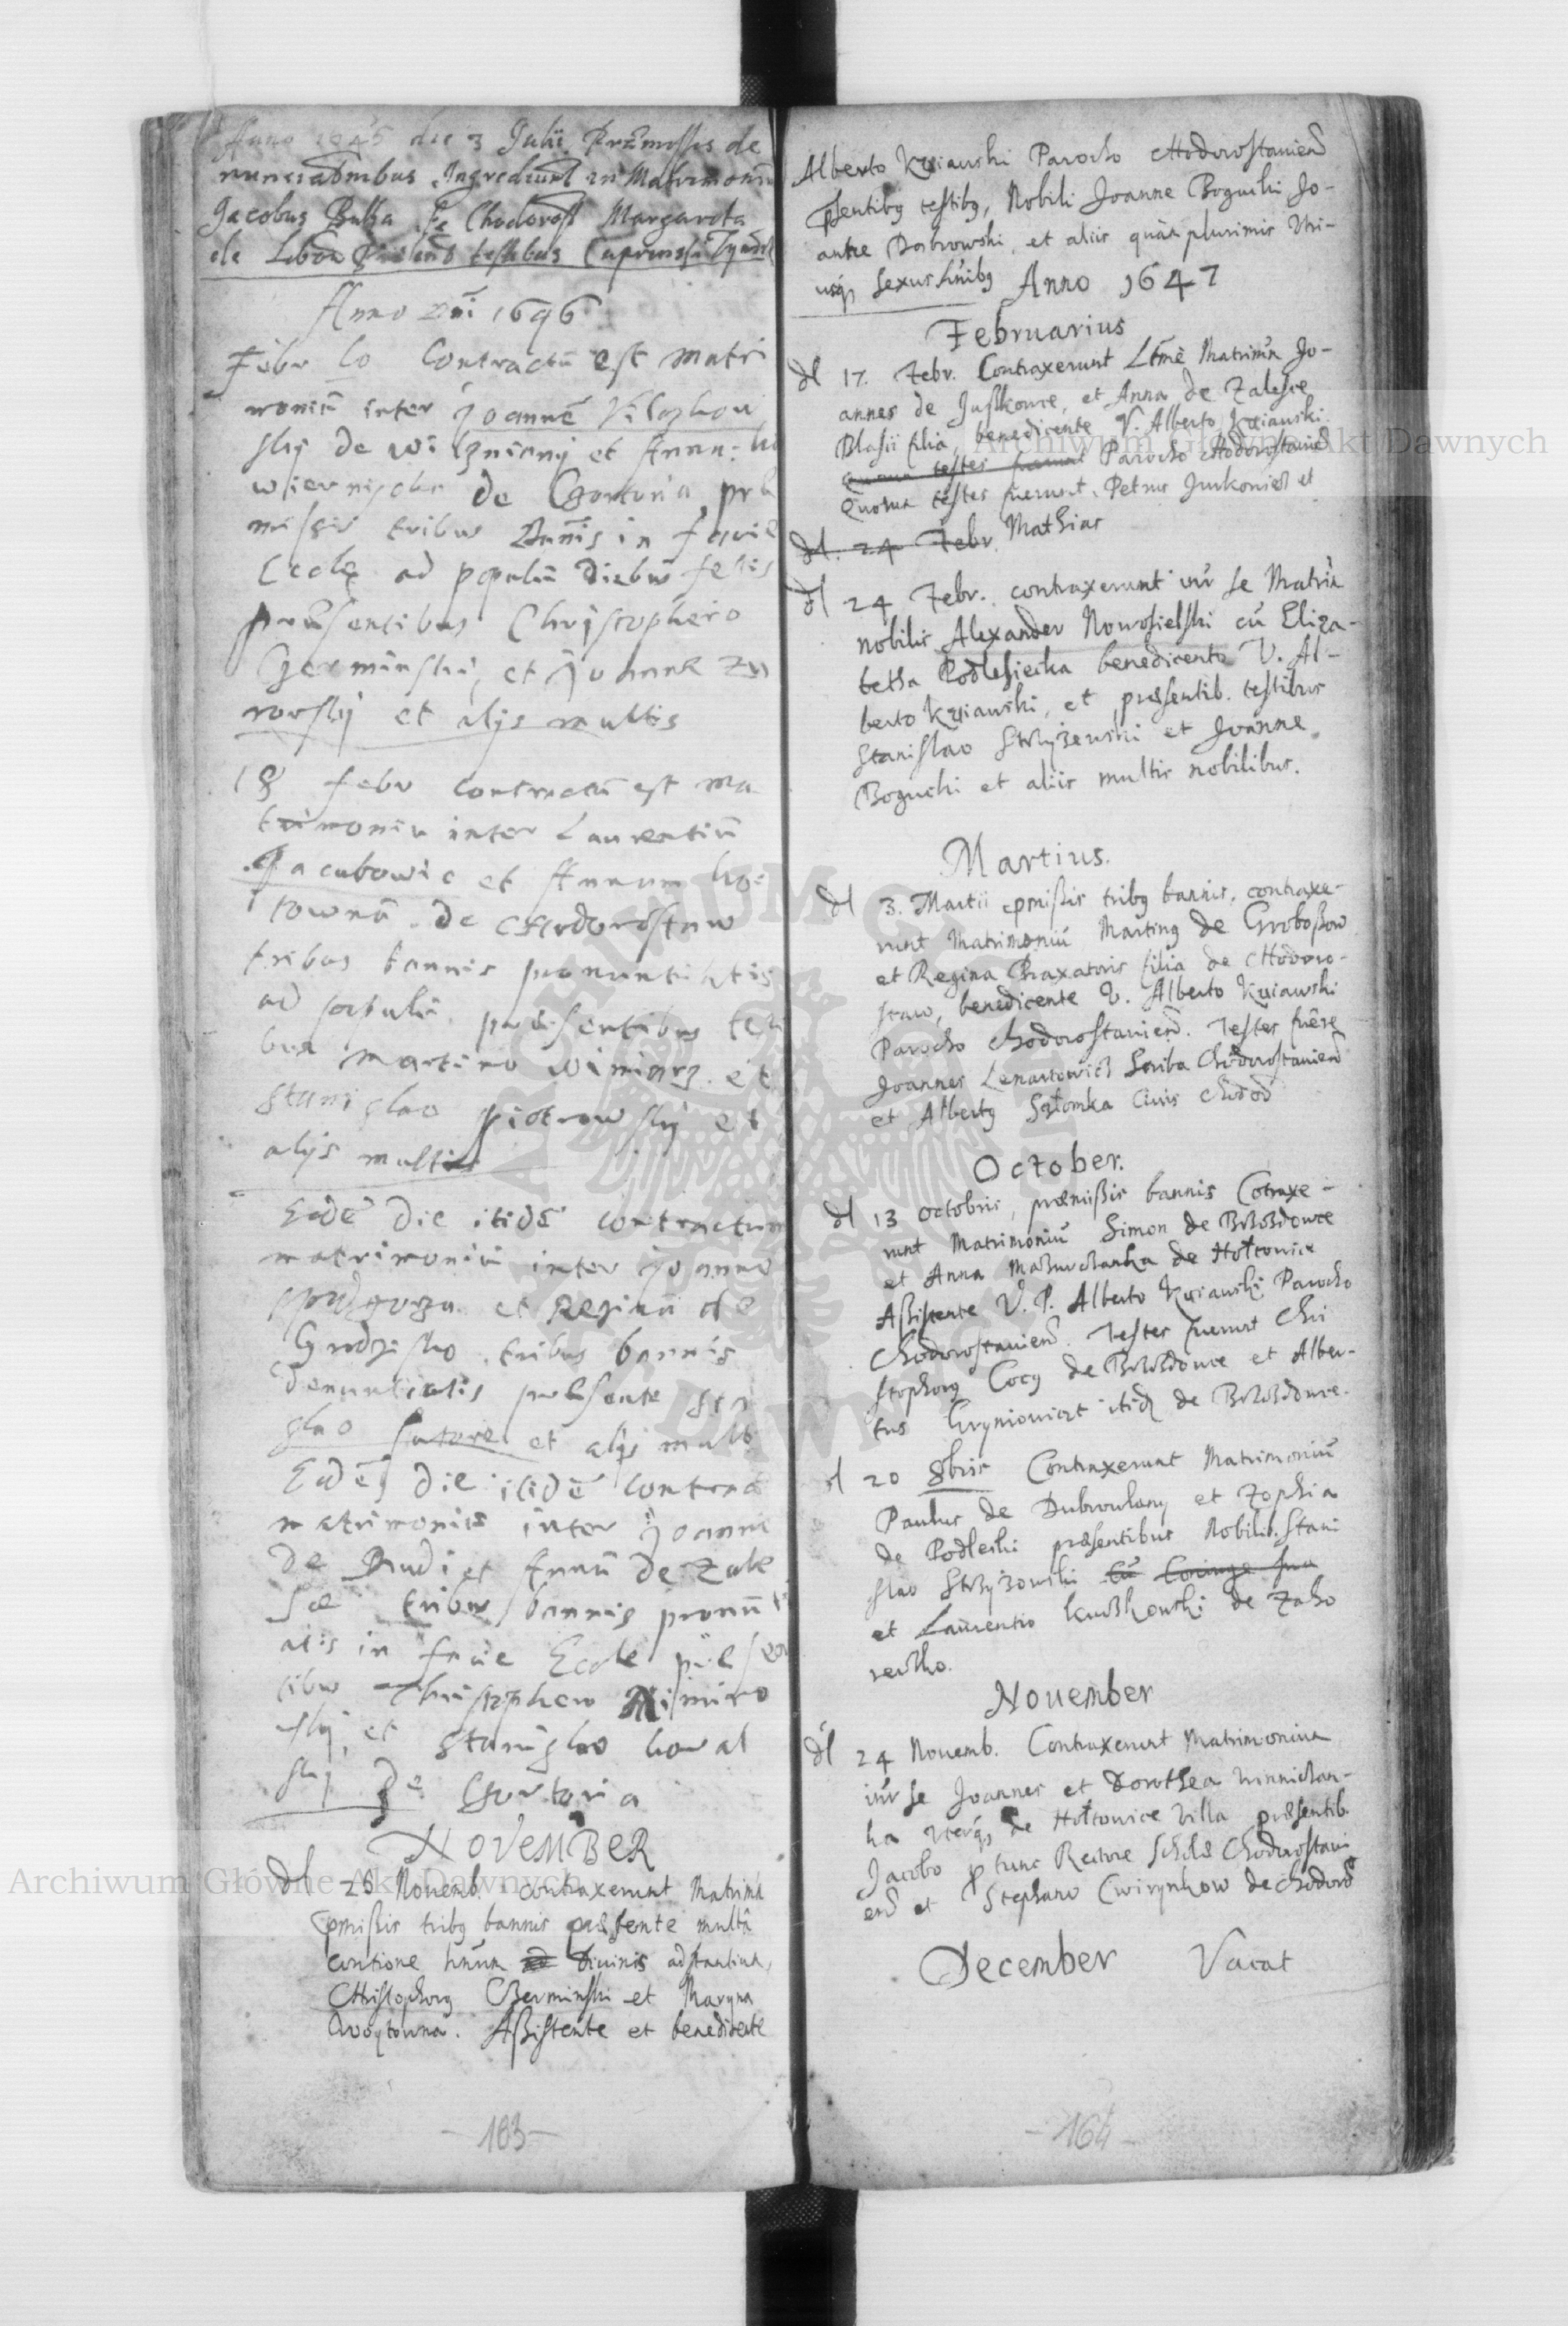 Anno 1645 die 3 Julii Præmissis de
nunciationibus Ingrediunt in Matrimoniũ
Jacobus Butha de Chodorost Margareta
de testibus
Anno Dni 1646
Febr 10 Contractũ est matri
moniũ inter Joannẽ
skij de et Annan
de Czortoria præ
missis tribus Bannis in facie
Eccle ad populũ diebus festis
præsentibus Christophero
Czerminski, et Johanne
rowskij et alijs multis
18 febr contractũ est ma
trimoniu inter Laurentiũ
Jacubowic et Annam
townã de Chodorostaw
tribus bannis pronuntiatis
ad populũ præsentibus testi
bus Martino winiarz et
Stanislao piotrowskij et
alijs multis
Eadẽ die itidẽ contractum
matrimoniũ inter Joanne
et Reginã de
Grodzisko tribus bannis
denuntiatis præsente Stani
slao Sutore et alijs mult
Eadẽ die itidẽ contract
matrimoniũ inter Joanne
De Rudi et Annũ de Zale
sie tribus bannis pronũti
atis in facie Eccle præsen
tibus Christophero
skij et Stanislao Kowal
skij De Czortoria
NOVEMBER
dl 26 Nouemb. contraxerunt Matrimũ
pmissis tribg bannis præsente multâ
contione hnũm ad Diuinis adstantium,
CHristophorg Czerminski et Maryna
Woytowna. Assistente et benedicente
-163-
Alberto Kuiawski Parocho CHodorostauiens
psentibg testibg, Nobili Joanne Bogucki Jo-
anne Dabrowski, et aliis quàm plurimis Utri-
usqz sexus hnĩbg Anno 1647
Februarius
dl 17. Febr. Contraxerunt Ltmè Matrimũ Jo-
annes de Juskowce, et Anna de Zalesie
Blasii filia, benedicente V. Alberto Kuiawski
Quorum testes fuerunt Parocho CHodorostauiens
Quorum testes fuerunt. Petrus Jurkowicz et
dl. 24 Febr. Mathias
dl 24 Febr. contraxerunt inr se Matrim
nobilis Alexander Nowosielski cũ Eliza-
betha Podlesiecka benedicente V. Al-
berto Kuiawski, et præsentib. testibus
Stanislao Strzyżewski et Joanne
Bogucki et aliis multis nobilibus.
Martius.
dl 3. Martii pmissis tribg bannis, contraxe-
runt Matrimoniũ Marting de Grobossow
et Regina Braxatoris filia de CHodoro-
staw, benedicente V. Alberto Kuiawski
Parocho Chodorostauiens. Testes fuêre
Joannes Lenartowicz Scriba Chodorostauiens
et Albertg Szłomka Ciuis Chodor
October.
dl 13 octobris, præmissis bannis Cotraxe-
runt Matrimoniũ Simon de Brzozdowce
et Anna Mazurczanka de Hołtowice
Assistente V. P. Alberto Kuiawski Parocho
Chodorostauiens. Testes fuerunt Chri
stophorg Cocg de Brzozdowce et Alber-
tus Hryniowicz itid de Brzozdowce.
dl 20 8bris Contraxerunt Matrimoniũ
Paulus de Dubrowlany et Zophia
de Podleski præsentibus Nobilib. Stani
slao Strzyżowski cũ Coniuge sua
et Laurentio Kuczkowski de Zaho
reczko.
November
dl 24 Nouemb. Contraxerunt Matrimonium
inr se Joannes et Dorothea Winniczan-
ka uterqz de Hołtowice Villa præsentib.
Jacobo p tunc Rectore Scholæ Chodorostaui
ens et Stephano Cwirynkow de Chodoro
December Vacat
-164-
Archiwum Główne Akt Dawnych
Archiwum Główne Akt Dawnych
ARCHIWUM GŁÓWNE AKT DAWNYCH